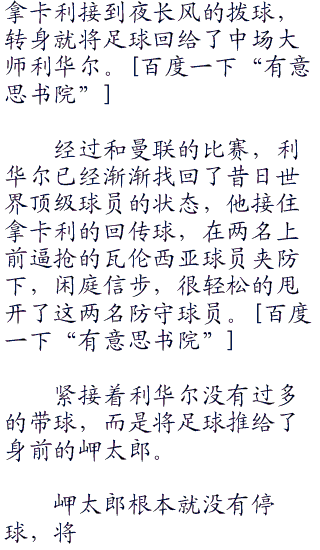 拿卡利接到夜长风的拨球，
转身就将足球回给了中场大
师利华尔。[百度一下“有意
思书院”]
经过和曼联的比赛，利
华尔已经渐渐找回了昔日世
界顶级球员的状态，他接住
拿卡利的回传球，在两名上
前逼抢的瓦伦西亚球员夹防
下，闲庭信步，很轻松的甩
开了这两名防守球员。[百度
一下“有意思书院”]
紧接着利华尔没有过多
的带球，而是将足球推给了
身前的岬太郎。
岬太郎根本就没有停
球，将